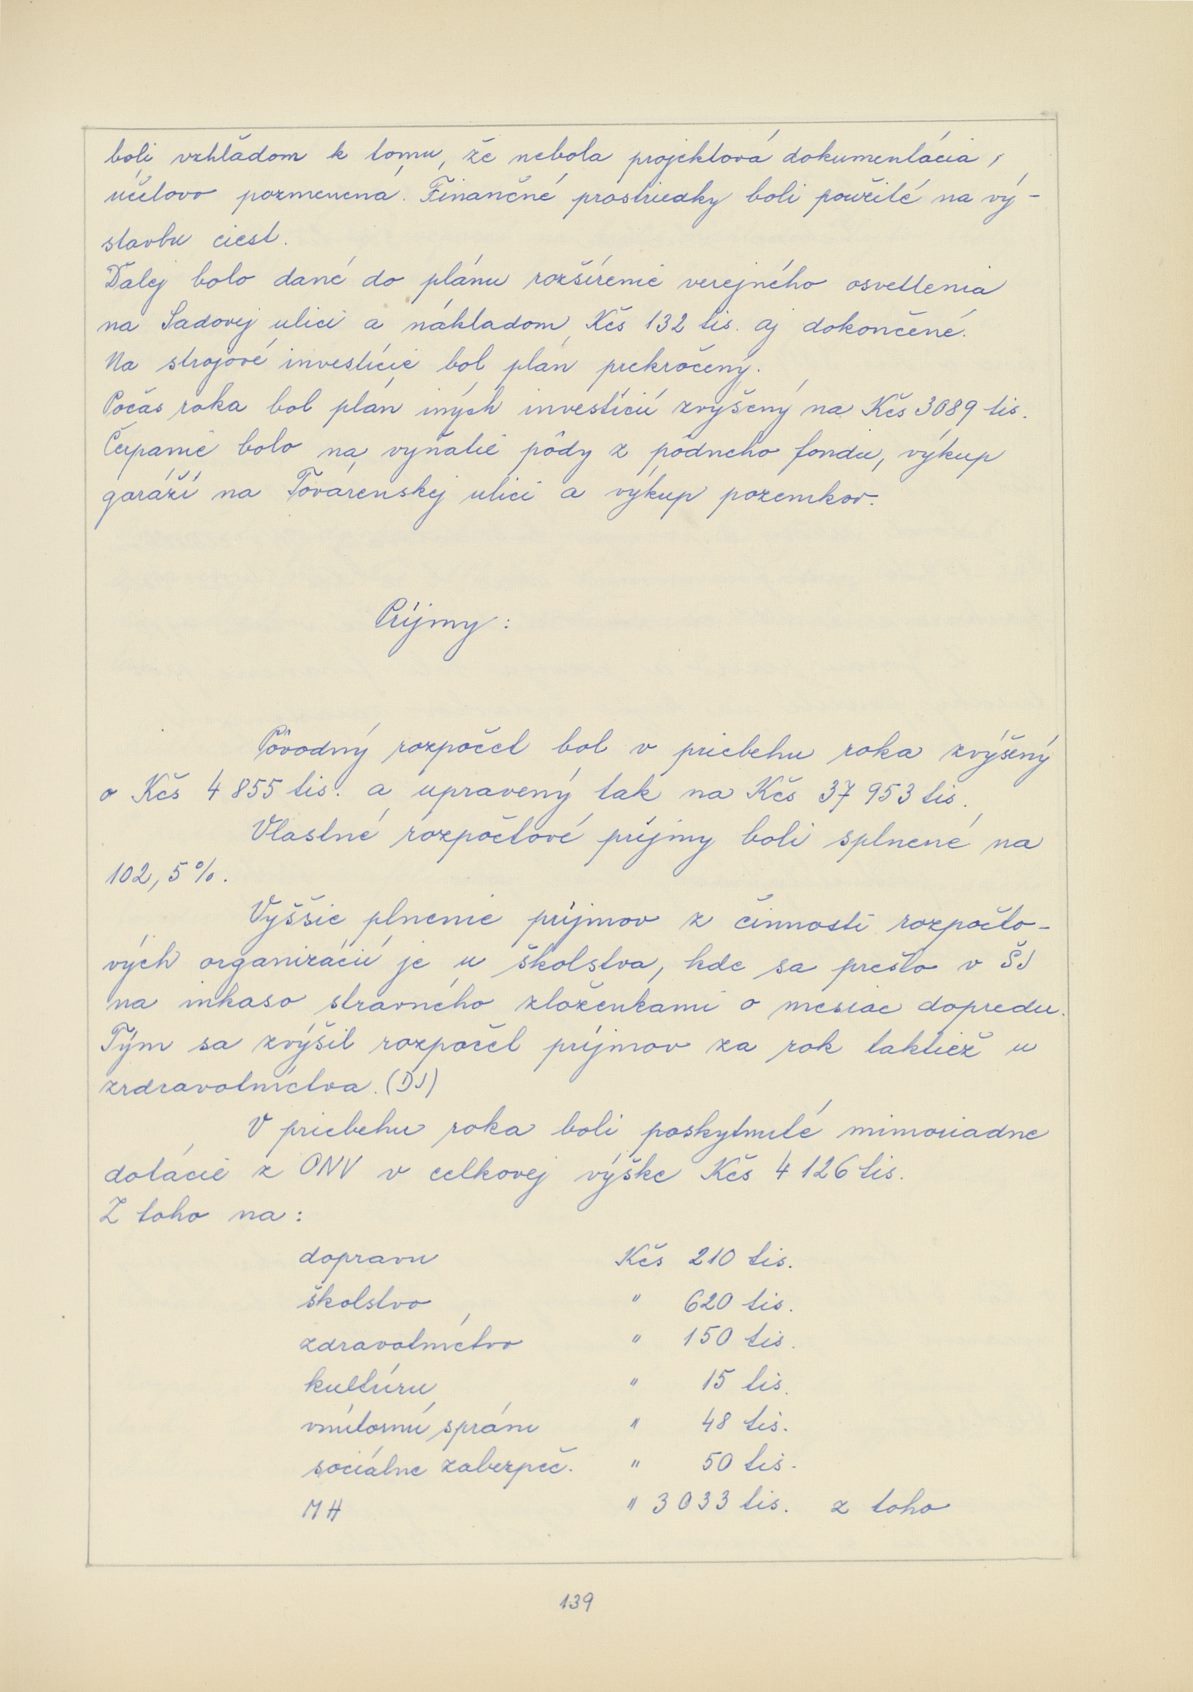 boli vzhľadom k tomu, že nebola projektová dokumentácia,
účelovo pozmenená. Finančné prostriedky boli použité na vý-
stavbu ciest.
Ďalej bolo dané do plánu rozšírenie verejného osvetlenia
na Sadovej ulici a nákladom Kčs 132 tis. aj dokončené.
Na strojové investície bol plán prekročený.
Počas roka bol plán iných investícií zvýšený na Kčs 3089 tis.
Čerpanie bolo na vyňatie pôdy z pôdneho fondu, výkup
garáží na Továrenskej ulici a výkup pozemkov.
Príjmy:
Pôvodný rozpočet bol v priebehu roka zvýšený
o Kčs 4 855 tis. a upravený tak na Kčs 37 953 tis.
Vlastné rozpočtové príjmy boli splnené na
102,5%.
Vyššie plnenie príjmov z činnosti rozpočto-
vých organizácií je u školstva, kde sa prešlo v ŠJ
na inkaso stravného zloženkami o mesiac dopredu.
Tým sa zvýšil rozpočet príjmov za rok taktiež u
zrdravotníctva. (DJ)
V priebehu roka boli poskytnuté mimoriadne
dotácie z ONV v celkovej výške Kčs 4 126 tis.
Z toho na:
dopravu Kčs 210 tis.
školstvo " 620 tis.
zdravotníctvo " 150 tis.
kultúru " 15 tis.
vnútornú správu " 48 tis.
sociálne zabezpeč. " 50 tis.
MH " 3 033 tis. z toho
139